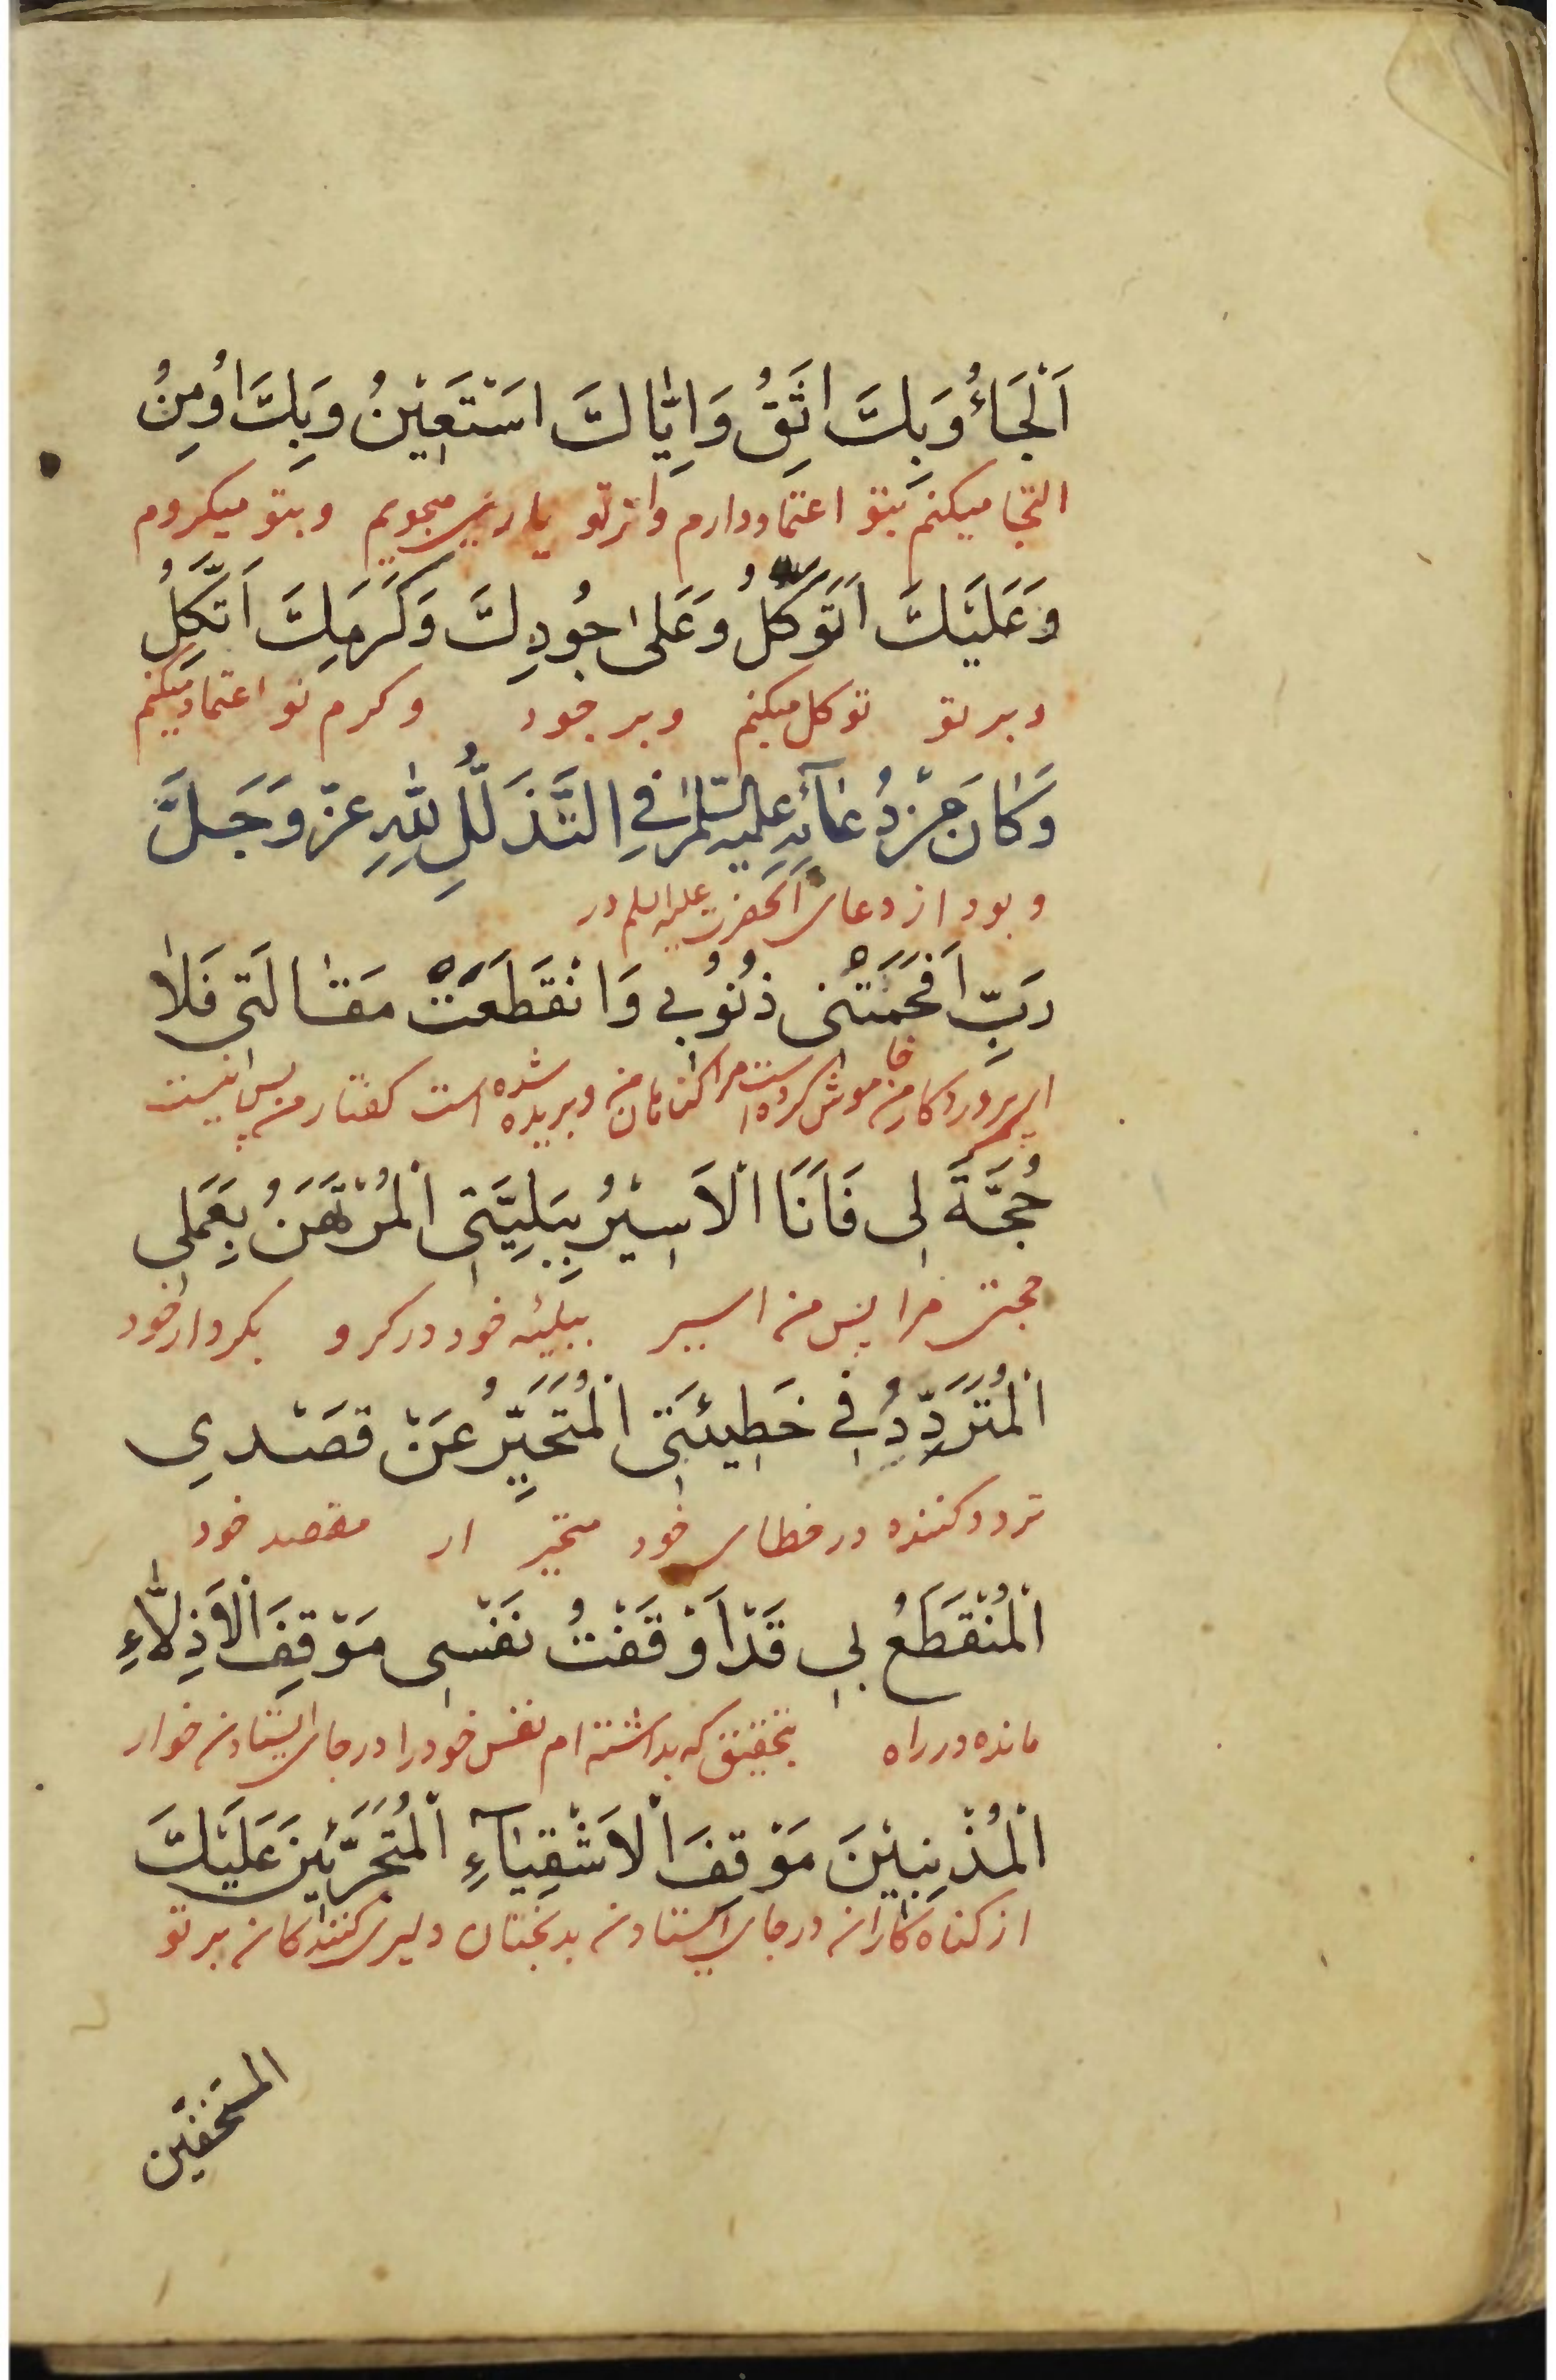 اَلْجَاءُ وَبِكَ اَثِقُ وَاِيّٰاكَ اَسْتَعِيْنُ وَبِكَ اُومِنُ
التجا میکنم بتو اعتماد دارم و از تو یاری میجویم و بتو میکروم
وَعَلَيْكَ اَتَوَكَّلُ وَعَلىٰ جُودِكَ وَكَرَمِكَ اَتَّكِلُ
و بر تو توکل میکنم و بر جود و کرم تو اعتماد میکنم
وَكَانَ مِنْ دُعَآئِهِ عليه السّلٰم فِي التَّذَلُّلِ لِلّٰهِ عزّ وَجَلَّ
و بود از دعای آنحضرت علیه السلم در
رَبِّ اَفْحَمَتْنى ذُنُوُبي وَانْقَطَعَتْ مَقٰالَتى فَلاٰ
ای پروردکار من خاموش کرده است مرا کناهان من و بریده شده است کفتار من پس نیست
حُجَّةَ لِى فَاَنَا الْاَسِيْرُ بِبَلِيَّتِى الْمُرْتَهَنُ بِعَمَلِى
حجتی مرا پس من اسیر ببلیئه خود در کرو بکردار خود
الْمُتَرَدِّدُ فِي خَطِيئَتِى الْمُتَحَيِّرُ عَنْ قَصْدي
تردد کننده در خطای خود متحیر از مقصد خود
الْمُنْقَطَعُ بِي قَدْ اَوْقَفْتُ نَفْسِى مَوْقِفَ الْاَذِلّٰاءِ
مانده در راه بتحقیق که بداشته ام نفس خود را در جای ایستادن خوار
الْمُذْنِبِيْنَ مَوْقِفَ الْاَشْقِيٰآءِ الْمُتَجَرِّئِينَ عَلَيْكَ
از کناه کاران در جای ایستادن بدبختان دلیری کنندکان بر تو
المستخفّين